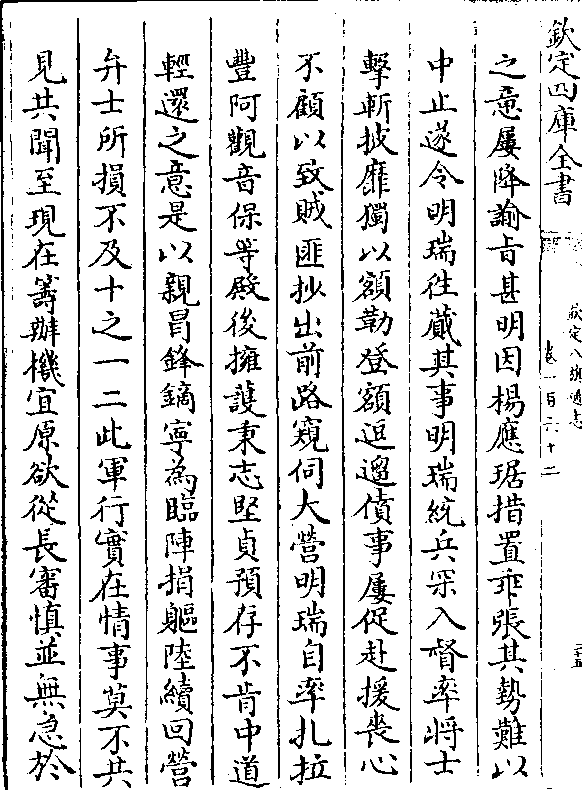 欽定四庫全書
欽定八旗通志
卷一百六十二
之意屢降諭旨甚明因楊應琚措置乖張其勢難以
中止遂令明瑞往蕆其事明瑞統兵深入督率將士
擊斬披靡獨以額勒登額逗遛僨事屢促赴援喪心
不顧以致賊匪抄出前路窺伺大營明瑞自率扎拉
豐阿觀音保等殿後擁護秉志堅貞預存不肯中道
輕還之意是以親冒鋒鏑寧為臨陣捐軀陸續回營
弁士所損不及十之一二此軍行實在情事莫不共
見共聞至現在籌辦機宜原欲從長審慎並無急於